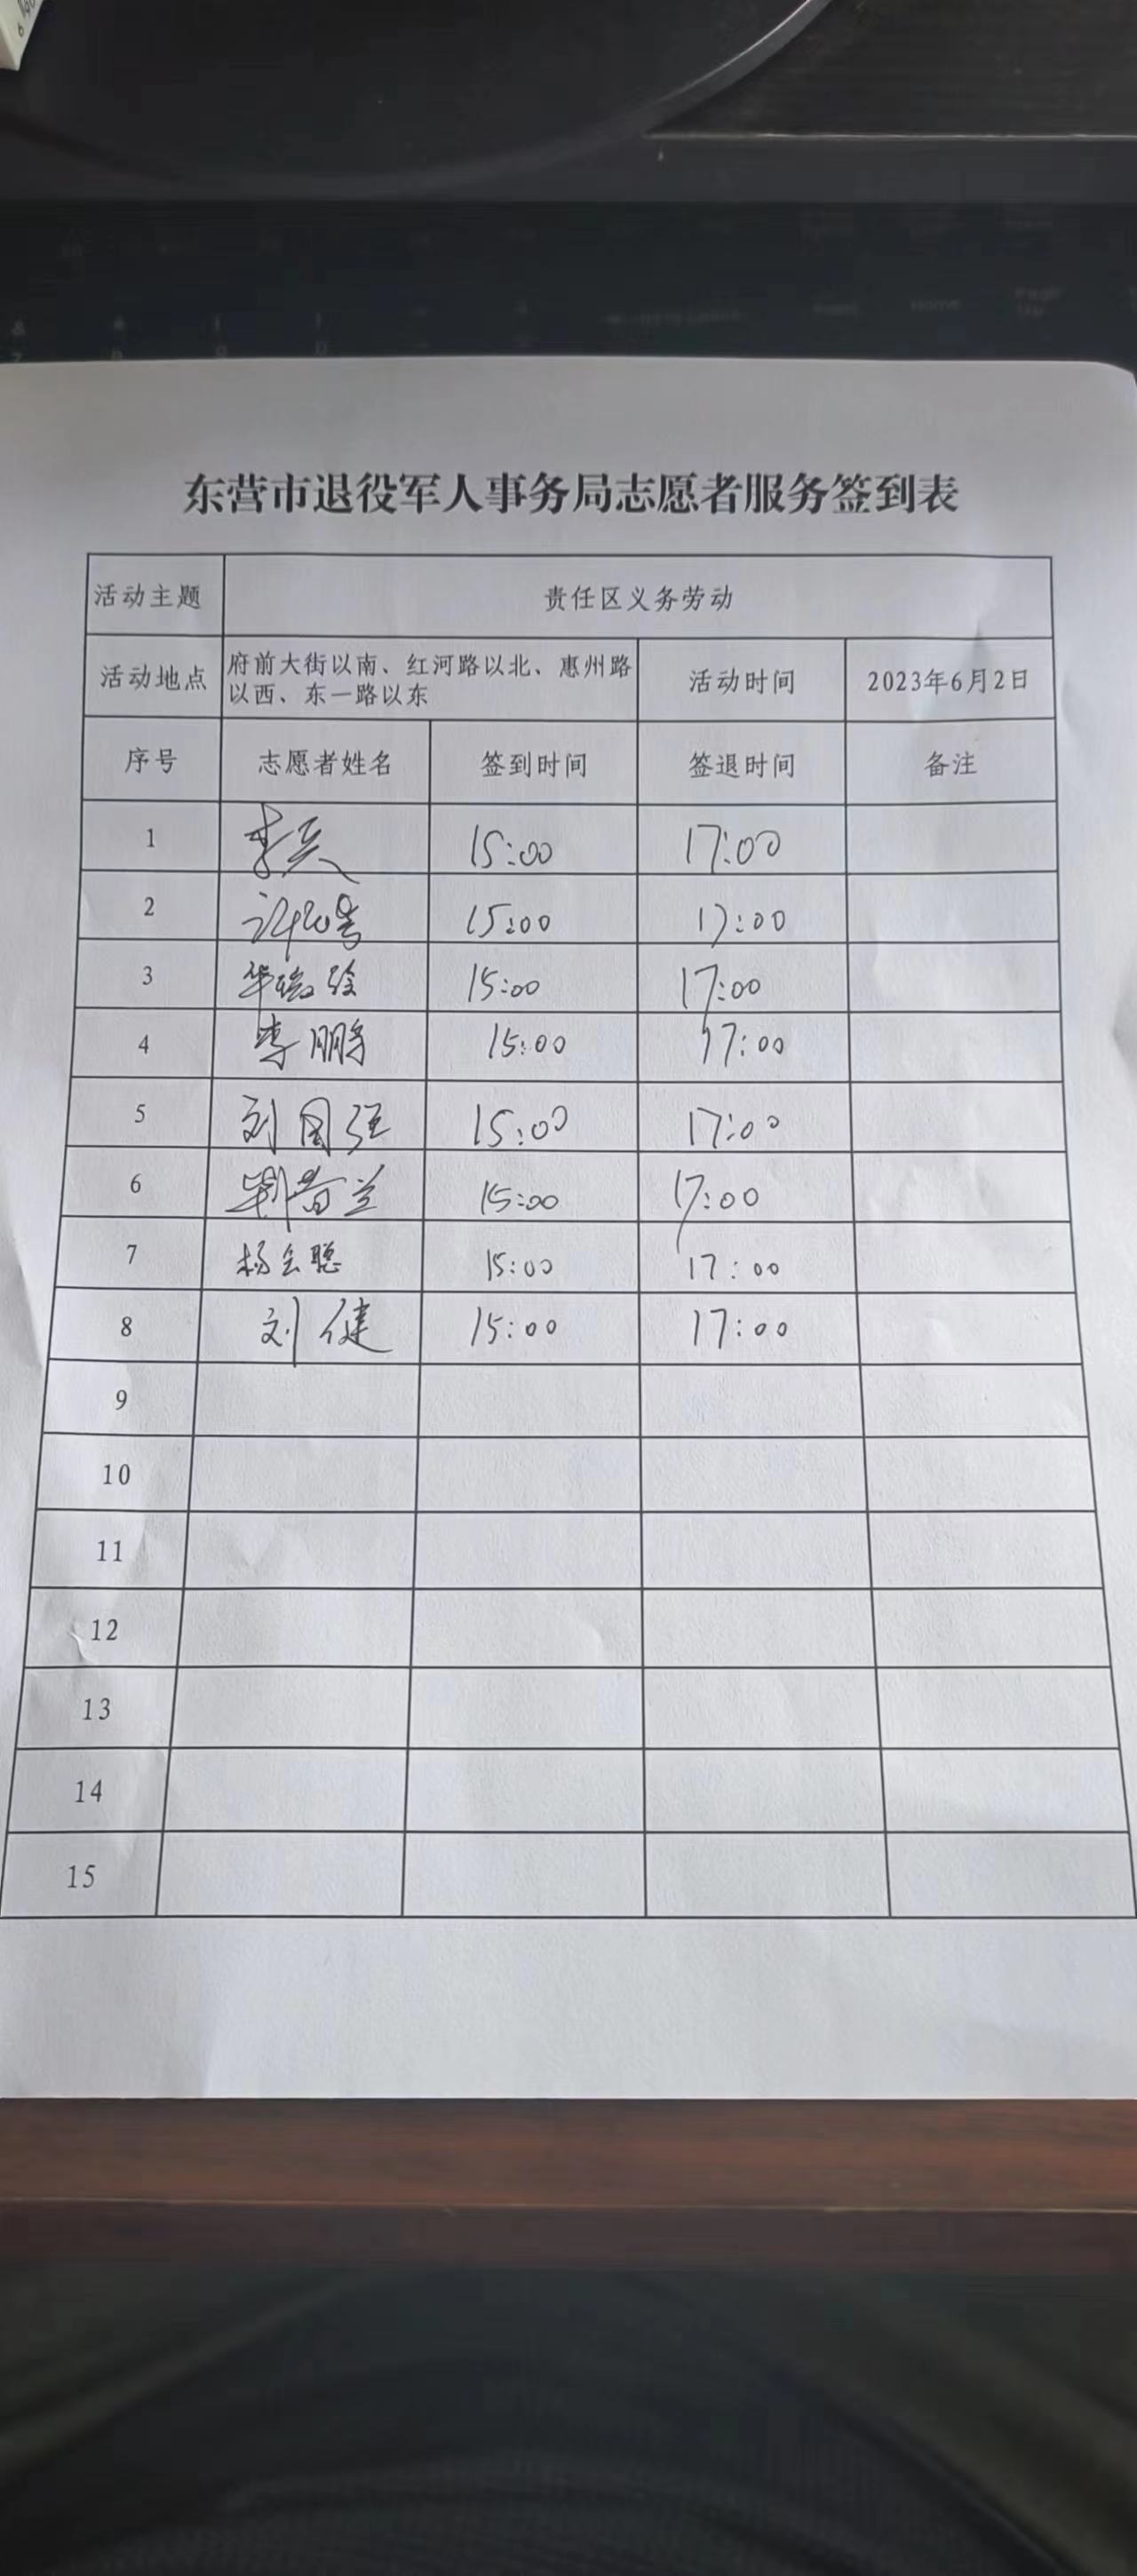 东营市退役军人事务局志愿者服务签到表
活动主题 责任区义务劳动
活动地点 府前大街以南、红河路以北、惠州路以西、东一路以东 活动时间 2023年6月2日
序号 志愿者姓名 签到时间 签退时间 备注
1 15:00 17:00
2 15:00 17:00
3 15:00 17:00
4 李鹏 15:00 17:00
5 刘国强 15:00 17:00
6 15:00 17:00
7 杨会聪 15:00 17:00
8 刘健 15:00 17:00
9
10
11
12
13
14
15